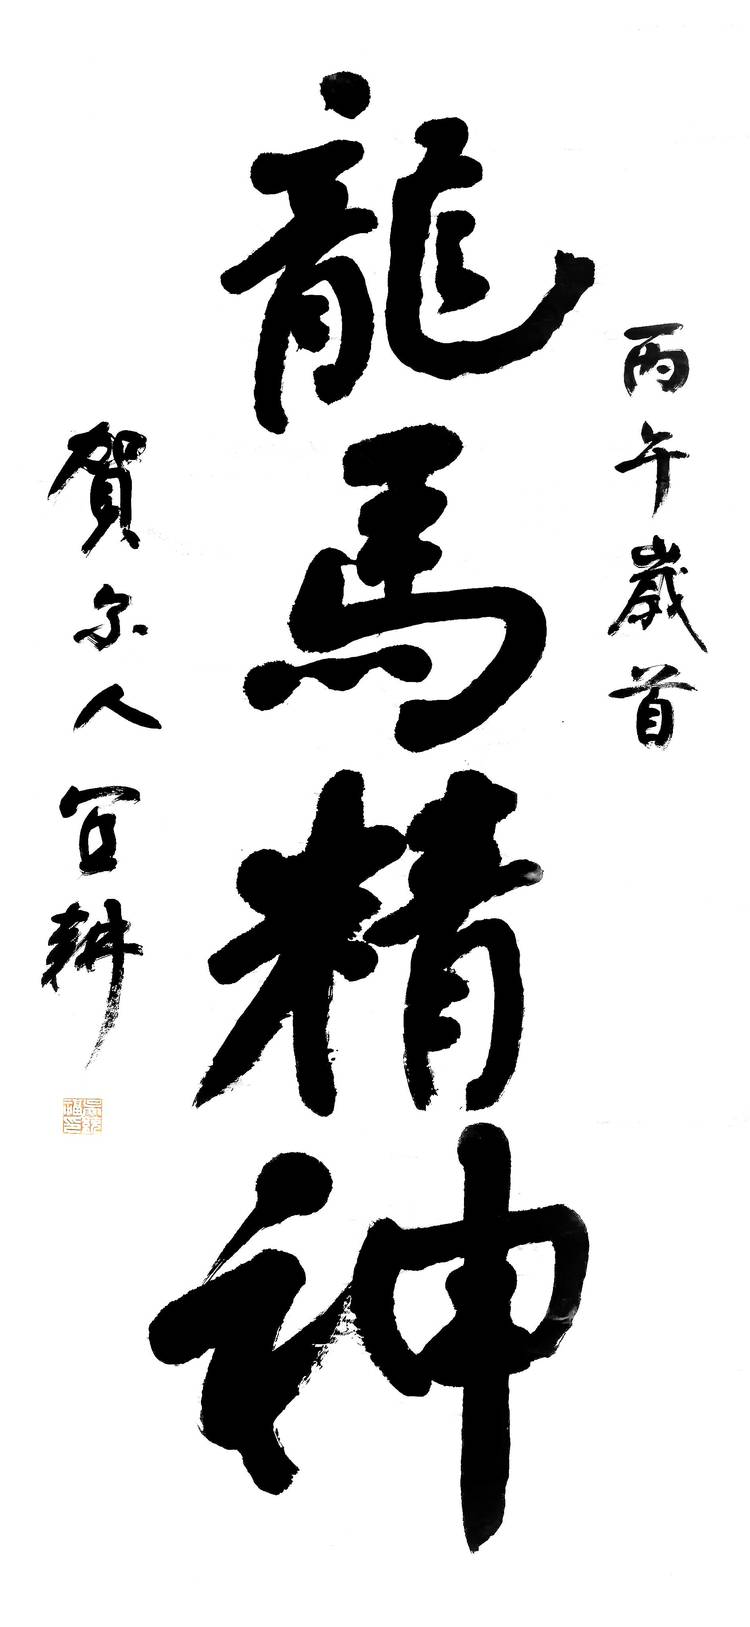 丙午歲首
龍馬精神
賀尔人宜耕